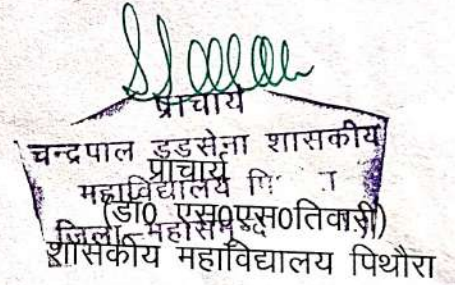 प्राचार्य
चन्द्रपाल डडसेना शासकीय
प्राचार्य
महाविद्यालय
(डॉ0 एस0एस0तिवारी)
जिला-
शासकीय महाविद्यालय पिथौरा